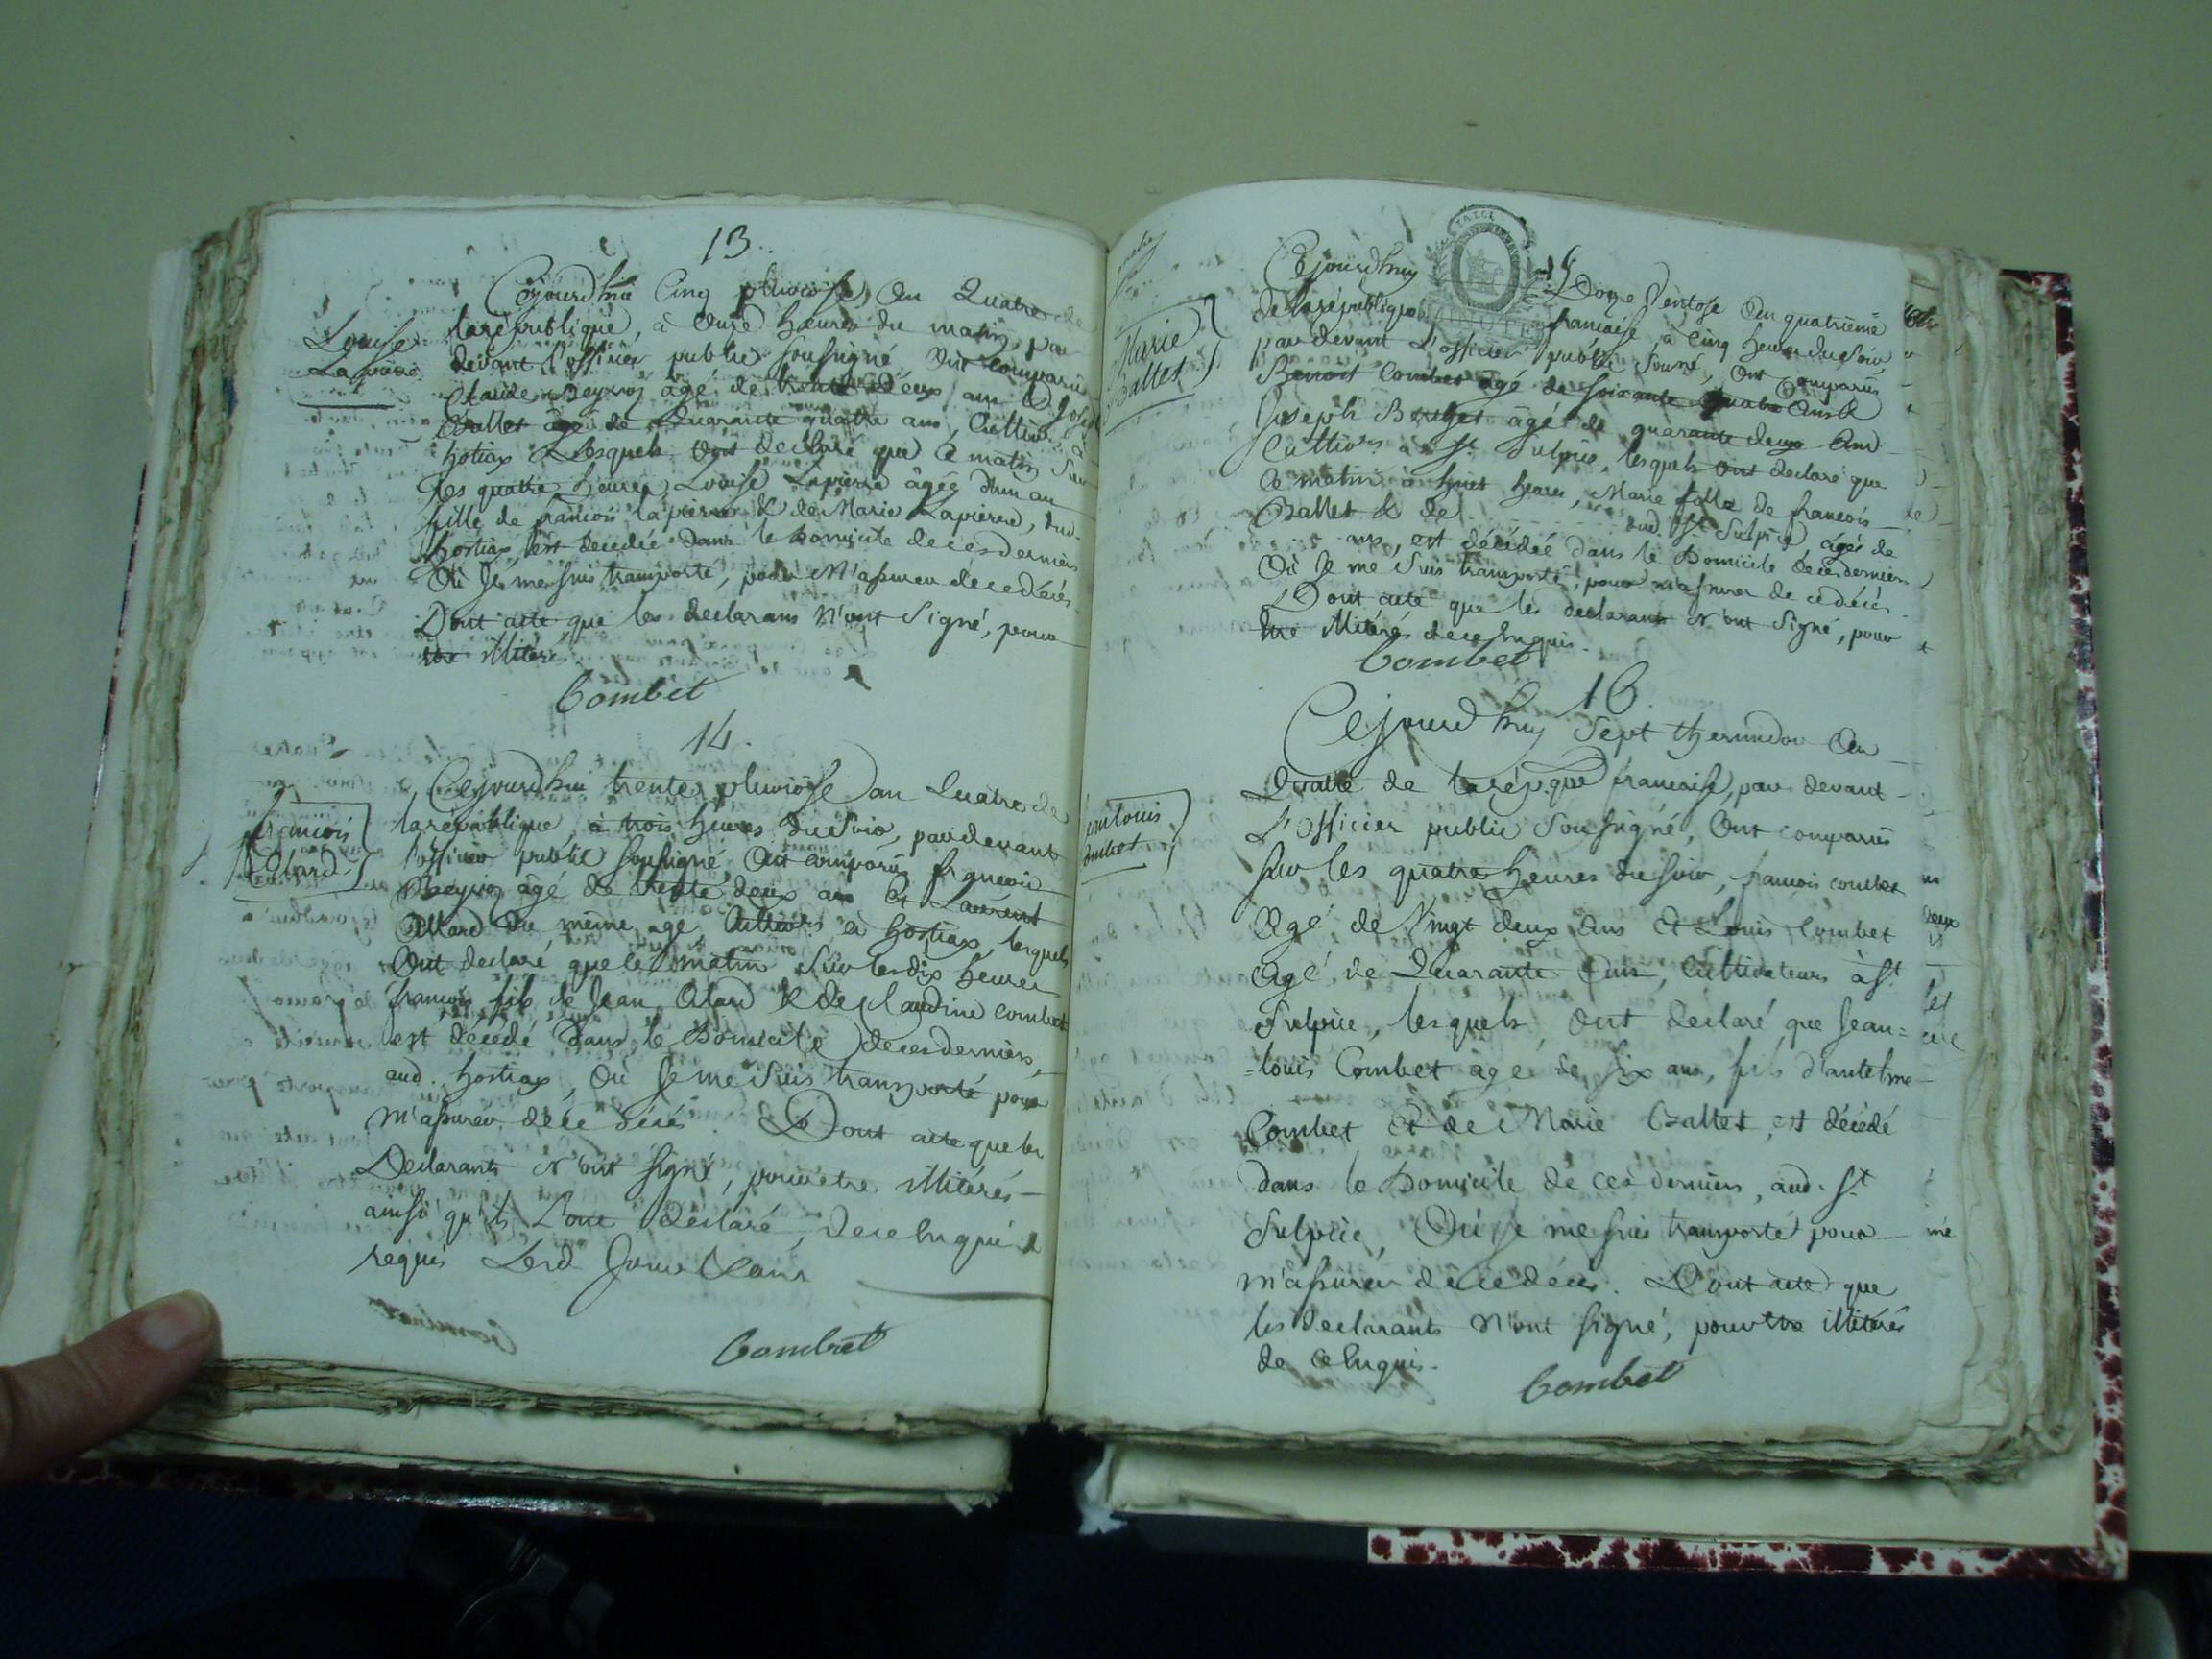 13.
Cejourd'hui Cinq pluviose, an Quatre de
Louise
Lapierre
la république, à Onze heures du matin, par
devant l'officier public soussigné Ont comparus
Claude Beyroz agé de trente deux ans & Joseph
Ballet âgé de Quarante quatre ans, Cultivrs à
hostiax Lesquels Ont declaré que Ce matin Sur
les quatre heures, Louise Lapierre âgée d'un an
fille de francois lapierre & de Marie Lapierre, dud.
hostiax, est decedée dans le Domicile de ces derniers
Où Je me suis transporté, pour M'assurer de ce décès.
Dont acte que les declarans N'ont Signé, pour
etre illitérés
Combet
14.
Cejourd'hui trente pluviose an Quatre de
francois
Allard
la république, à trois heures du soir, pardevant
l'officier public soussigné, Ont comparus francois
Beyroz âgé de trente deux ans Et Laurent
Allard du même age Cultivrs à hostiax, lesquels
Ont declaré que le matin Sur les dix heures
francois fils de Jean Alard & de Claudine combet
est décédé dans le Domicile de ces derniers,
aud. hostiax, Où Je me suis transporté pour
m'assurer de ce décés. Dont acte que les
Declarants N'ont signé, pour etre illitérés
ainsi qu'ils L'ont déclaré, de ce Enquis &
requis Lesd Jour & an
Combet
15
Cejourd'huy Doze Ventose l'an quatrieme
de la république francaise, à Cinq heures du soir
Marie
Ballet
par devant L'officier public sousné, Ont Comparus
Benoit Combet agé de soixante quatre Ans &
Joseph Ballet âgé de quarante deux Ans
Cultivrs à St Sulpice, lesquels Ont declaré que
Ce matin à huit heures, Marie fille de francois
Ballet & de dud. St Sulpice, âgée de
ans, est décédée dans le Domicile de ces derniers
Où Je me Suis transporté, pour m'assurer de ce décés.
Dont acte que les declarants N'ont Signé, pour
etre illitérés de ce Enquis.
Combet
16.
Cejourd'huy Sept thermidor An
Quatre de la rép.que francaise, par devant
jean louis
Combet
L'Officier public Soussigné, Ont comparus
Sur les quatre heures du soir, francois combet
Agé de Vingt deux ans Et Louis Combet
agé de Quarante Ans, Cultivateurs à St
Sulpice, lesquels Ont declaré que Jean=
=louis Combet àgé de six ans, fils d'antelme
Combet Et de Marie Ballet, est décédé
dans le Domicile de ces derniers, aud. St
Sulpice, Où Je me suis transporté pour
m'assurer de ce décés. Dont acte que
les declarants N'ont signé, pour etre illitérés
de ce Enquis.
Combet